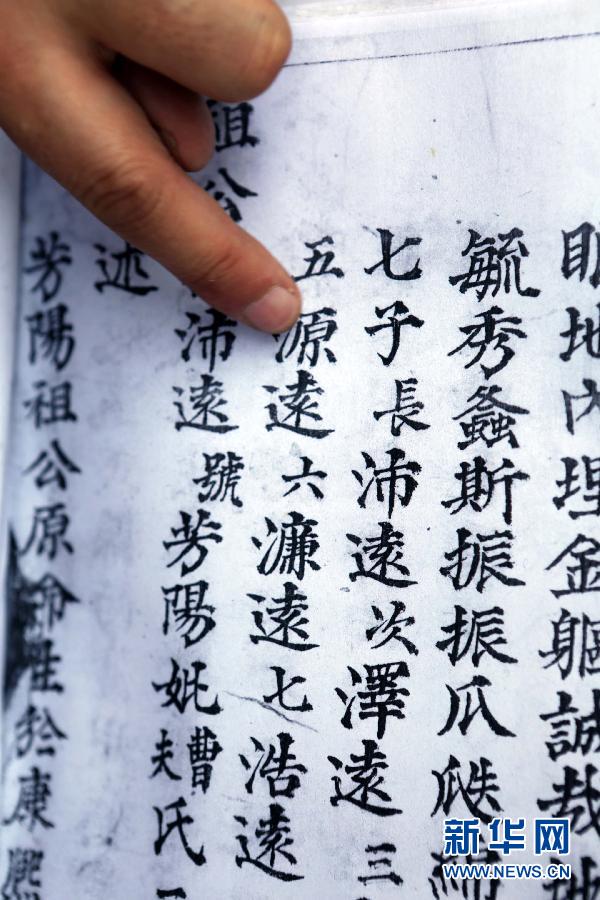 地內埋金軀誠哉地
毓秀螽斯振振瓜瓞
七子長沛遠次澤遠三
五源遠六濂遠七浩遠
祖公
沛遠號芳陽妣曹夫氏
述
芳陽祖公原命生於康熙
新华网
WWW.NEWS.CN